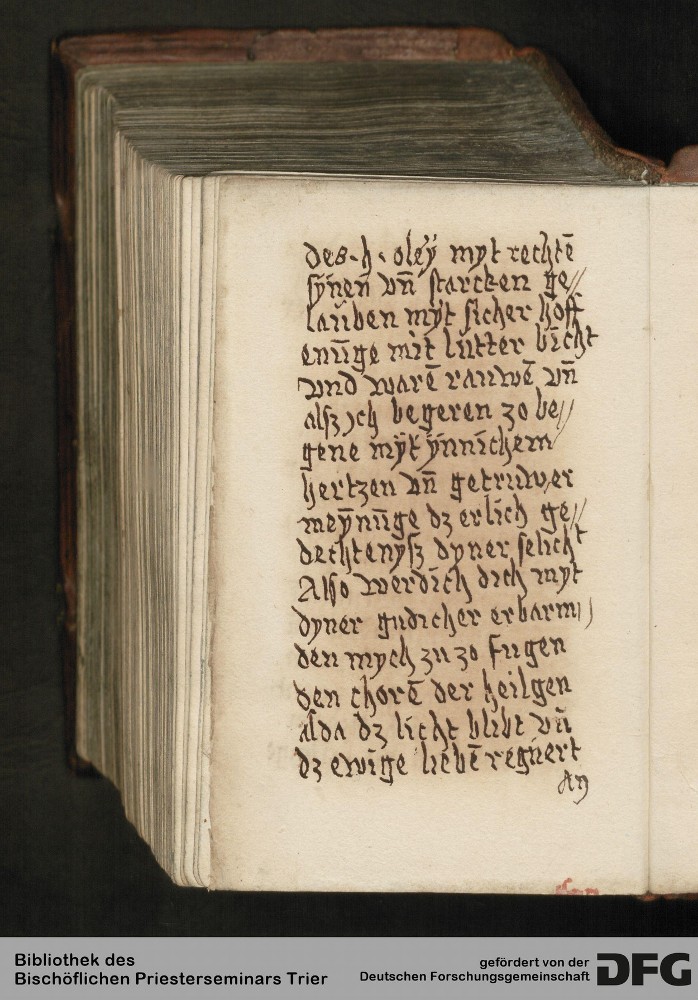 des · h · oleÿ myt rechtē
sÿnen vn̄ starcken ge//
lauben mÿt sicher hoff
enūge mit lutter bicht
vnd warē rauwē vn̄
alsz ich begeren zo be//
gene mÿt ÿnnichem
hertzen vn̄ getruwer
meÿnūge dz erlich ge//
dechtenysz dyner selicht
Also werdich dich myt
dyner gudicher erbarm//
den mych zu zo fugen
den chorē der heilgen
alda dz licht blibt vn̄
dz ewige liebē regnert
An
Bibliothek des
Bischöflichen Priesterseminars Trier
gefördert von der
Deutschen Forschungsgemeinschaft DFG